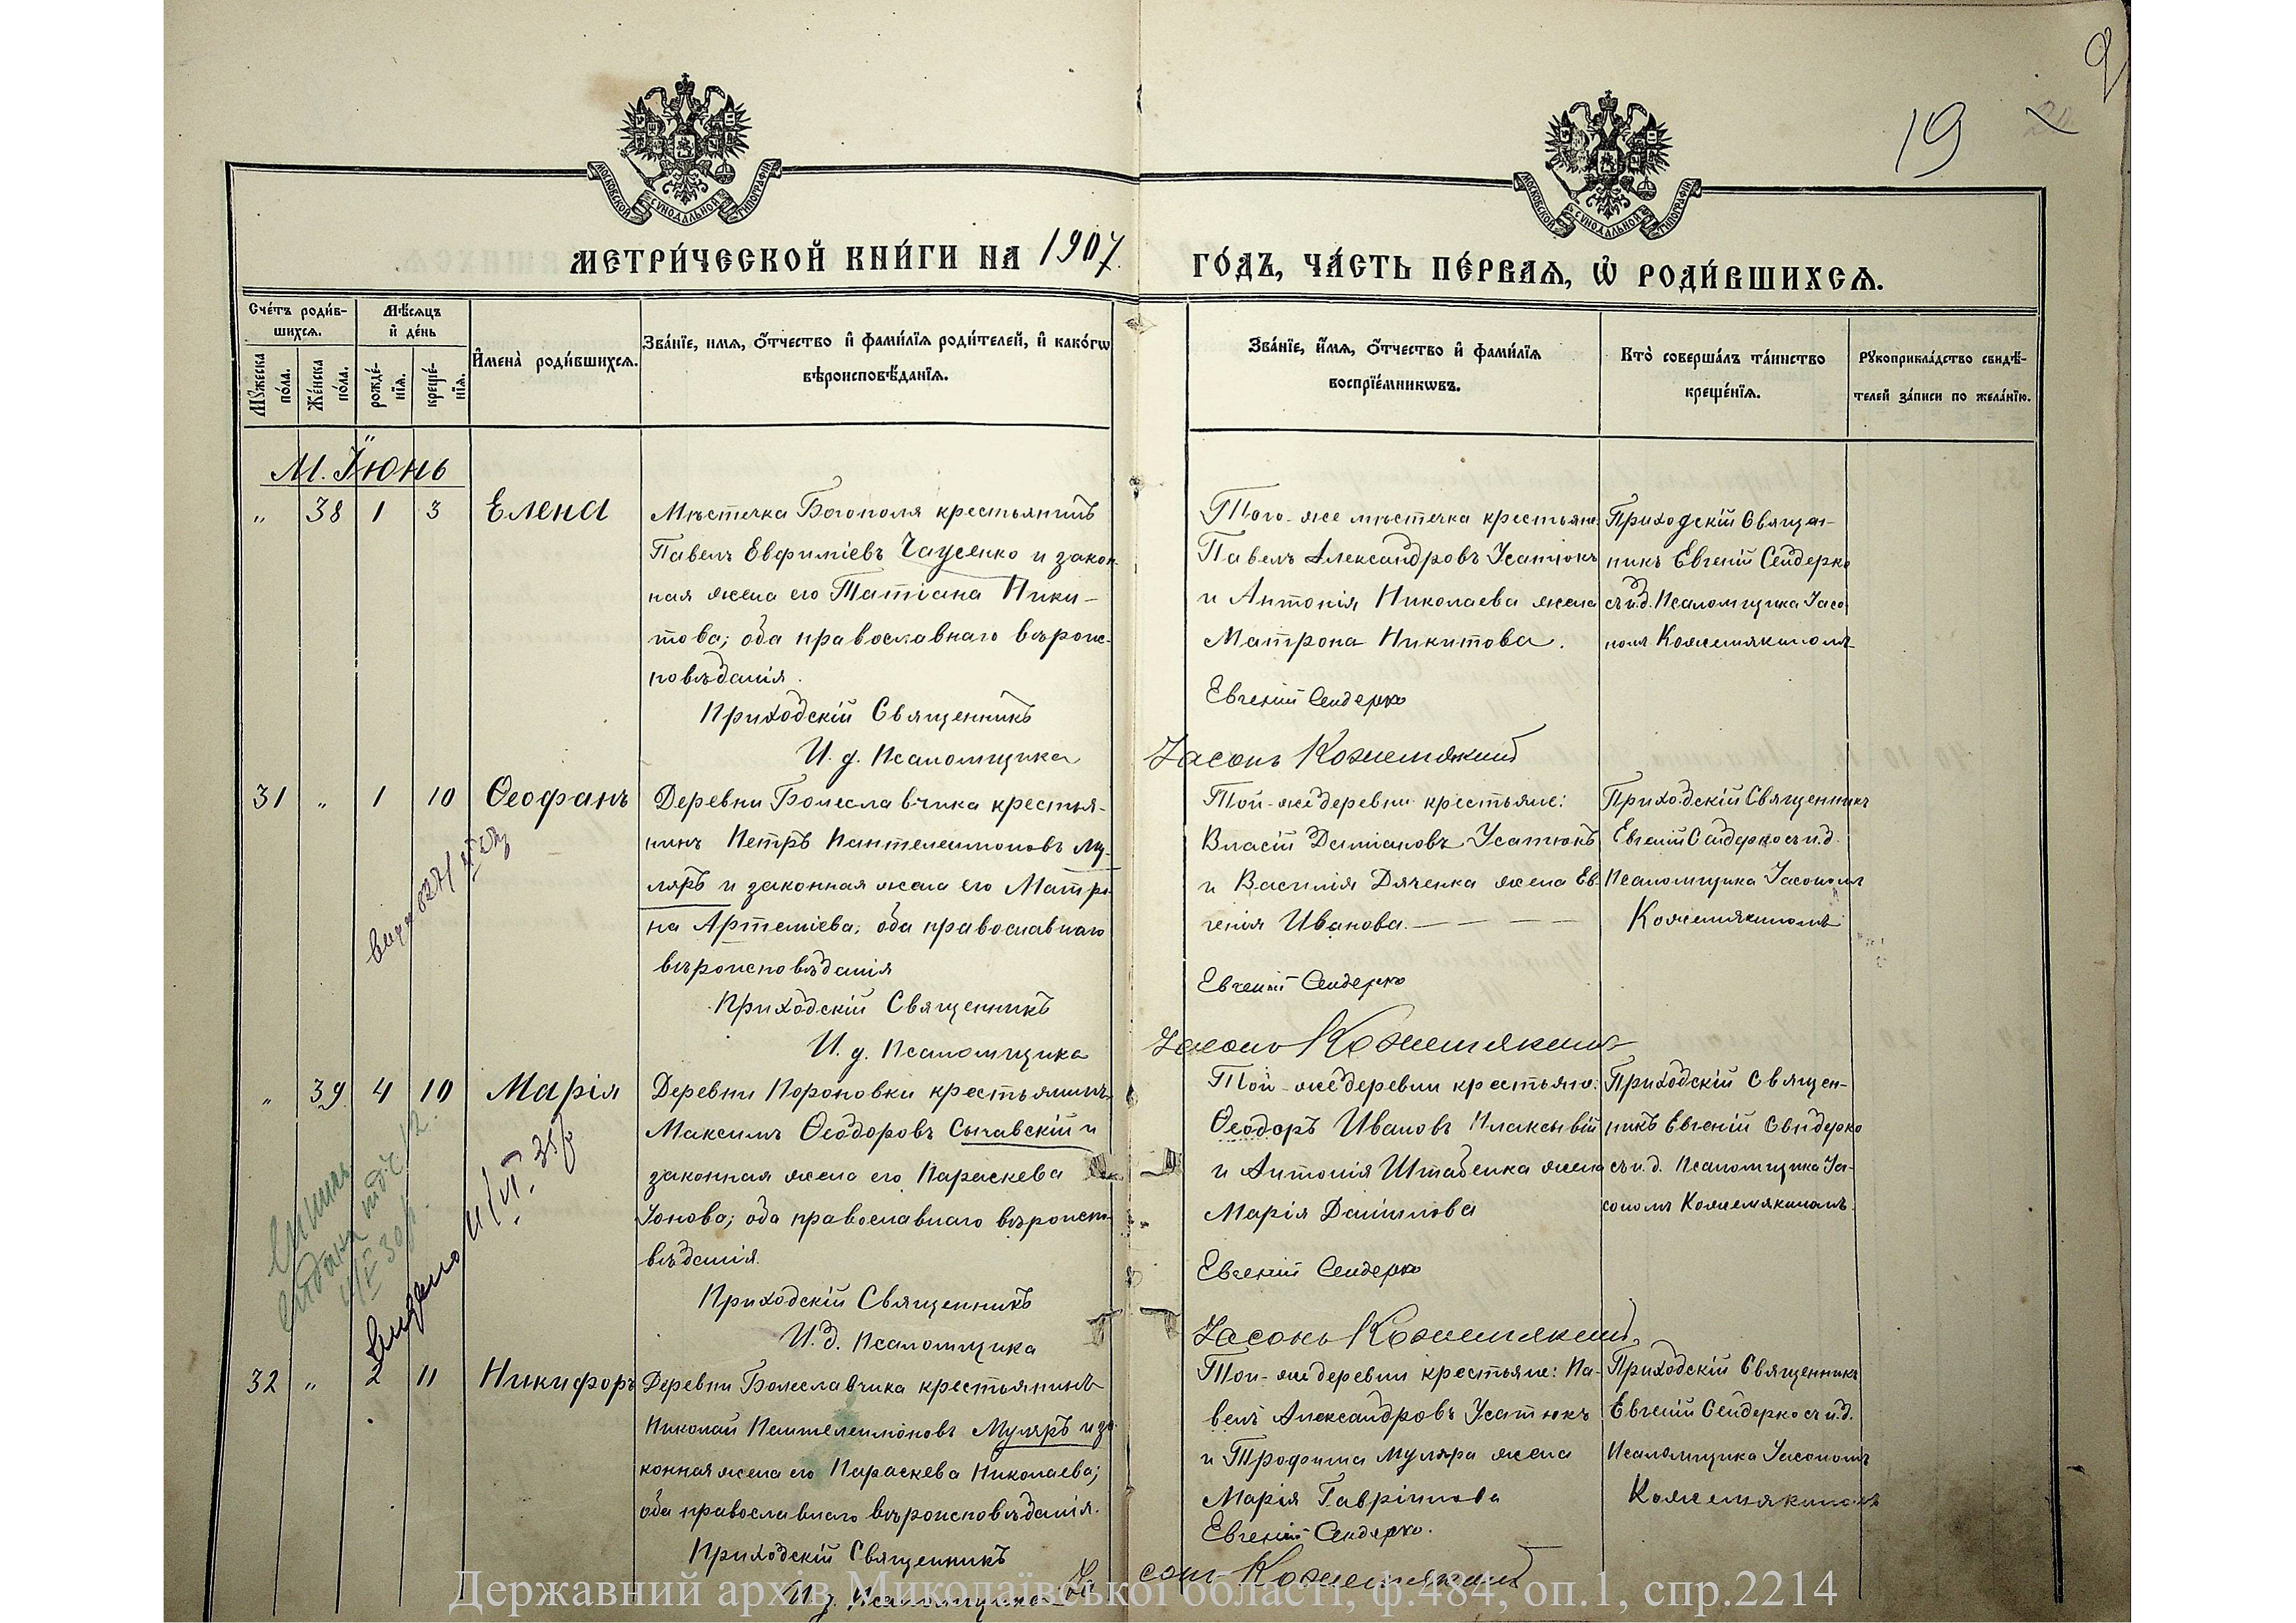 19
МОСКОВСКОЙ СѴНОДАЛЬНОЙ ТИПОГРАФІИ
МОСКОВСКОЙ СѴНОДАЛЬНОЙ ТИПОГРАФІИ
МЕТРИ́ЧЕСКОЙ КНИ́ГИ НА 1907 ГО́ДЪ, ЧА́СТЬ ПЕ́РВАѦ, Ѡ҆ РОДИ́ВШИХСѦ.
Сче́тъ роди́в-
шихсѧ.
Мꙋжеска
по́ла.
Же́нска
по́ла.
Мѣ́сѧцъ
и҆ де́нь
рожде́-
нїѧ.
креще́-
нїѧ.
И҆мена̀ роди́вшихсѧ.
Зва́нїе, имѧ, ѻ҆́тчество и҆ фами́лїѧ роди́телей, и҆ како́гѡ
вѣроисповѣ́данїѧ.
Зва́нїе, и҆́мѧ, ѻ҆́тчество и҆ фами́лїѧ
воспрїе́мникѡвъ.
Кто̀ соверша́лъ та́инство
креще́нїѧ.
Рꙋкоприкла́дство свидѣ́-
телей за́писи по жела́нїю.
М. Іюнь
" 38 1 3 Елена
Мѣстечка Богополя крестьянинъ
Павелъ Евфиміевъ Чаусенко и закон
ная жена его Татіана Ники-
това; оба православнаго вѣроис-
повѣданія.
Приходскій Священникъ
И. д. Псаломщика
Того-же мѣстечка крестьяне:
Павелъ Александровъ Усатюкъ
и Антонія Николаева жена
Матрона Никитова.
Евгеній Сендерко
Іасонъ Кожемякинъ
Приходскій Священ-
никъ Евгеній Сендерко
съ и.д. Псаломщика Іасо
номъ Кожемякиномъ
31 " 1 10 Ѳеофанъ
Деревни Болеславчика крестья-
нинъ Петръ Пантелеимоновъ Му-
ляръ и законная жена его Матро
на Артеміева; оба православнаго
вѣроисповѣданія
Приходскій Священникъ
И. д. Псаломщика
Той-же деревни крестьяне:
Власій Даміановъ Усатюкъ
и Василія Дяченка жена Ев-
генія Иванова.
Евгеній Сендерко
Іасонъ Кожемякинъ
Приходскій Священникъ
Евгеній Сендерко съ и.д.
Псаломщика Іасономъ
Кожемякиномъ
" 39 4 10 Марія
Выдано 11/VI 35 г
Деревни Пороновки крестьянинъ
Максимъ Ѳеодоровъ Сычавскій и
законная жена его Параскева
Іонова; оба православнаго вѣроиспо
вѣданія.
Приходскій Священникъ
И.д. Псаломщика
Той-же деревни крестьяне:
Ѳеодоръ Ивановъ Плаксывій
и Антонія Штабенка жена
Марія Даніилова
Евгеній Сендерко
Іасонъ Кожемякинъ.
Приходскій Священ-
никъ Евгеній Сендерко
съ и.д. Псаломщика Іа-
сономъ Кожемякиномъ.
32 " 2 11 Никифоръ
Деревни Болеславчика крестьянинъ
Николай Пантелеимоновъ Муляръ и за
конная жена его Параскева Николаева;
оба православнаго вѣроисповѣданія.
Приходскій Священникъ
И. д. Псаломщика
Той-же деревни крестьяне: Па-
велъ Александровъ Усатюкъ
и Трофима Муляра жена
Марія Гавріилова
Евгеній Сендерко.
Іасонъ Кожемякинъ
Приходскій Священникъ
Евгеній Сендерко съ и.д.
Псаломщика Іасономъ
Кожемякиномъ
Державний архів Миколаївської області, ф.484, оп.1, спр.2214